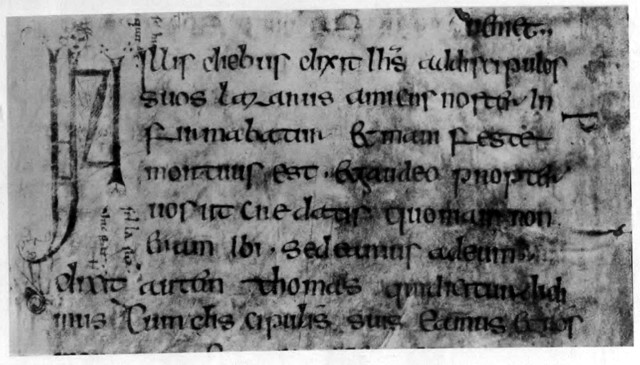 venit..
IN Illis diebus dixit Ihs addiscipulos
suos lazarus amicus noster In
firmabatur & manifeste
mortuus est · & gaudeo propter
uos ut credatis quoniam non
eram Ibi · sed eamus adeum
dixit autem thomas qui dicitur didi
mus Cum discipulis suis Eamus & nos